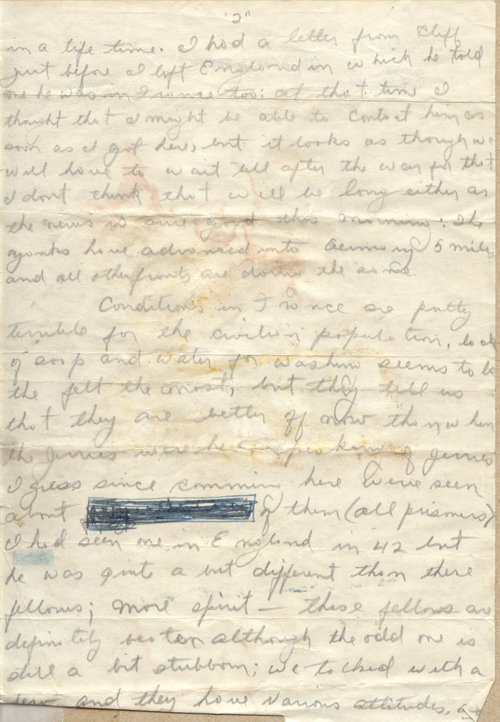 "2"
in a life time. I had a letter from Cliff
just before I left England in which he told
me he was in France too: at that time I
thought that I might be able to contact him as
soon as I got here, but it looks as though we
will have to wait till after the war for that
I dont think that will be long either as
the news is sure good this morning: The
yanks have advanced into Germany 5 miles
and all other fronts are doing the same.
Conditions in France are pretty
terrible for the civilian population, lack
of soap and water for washin seems to be
the felt the most, but they tell us
that they are better off now than when
the jerries were here speaking of jerries
I guess since comming here We've seen
about of them (all prisoners)
I had seen one in England in 42 but
he was quite a bit different than these
fellows; more spirit — these fellows are
definitely beaten although the odd one is
still a bit stubborn; we talked with a
few and they have various attitudes,